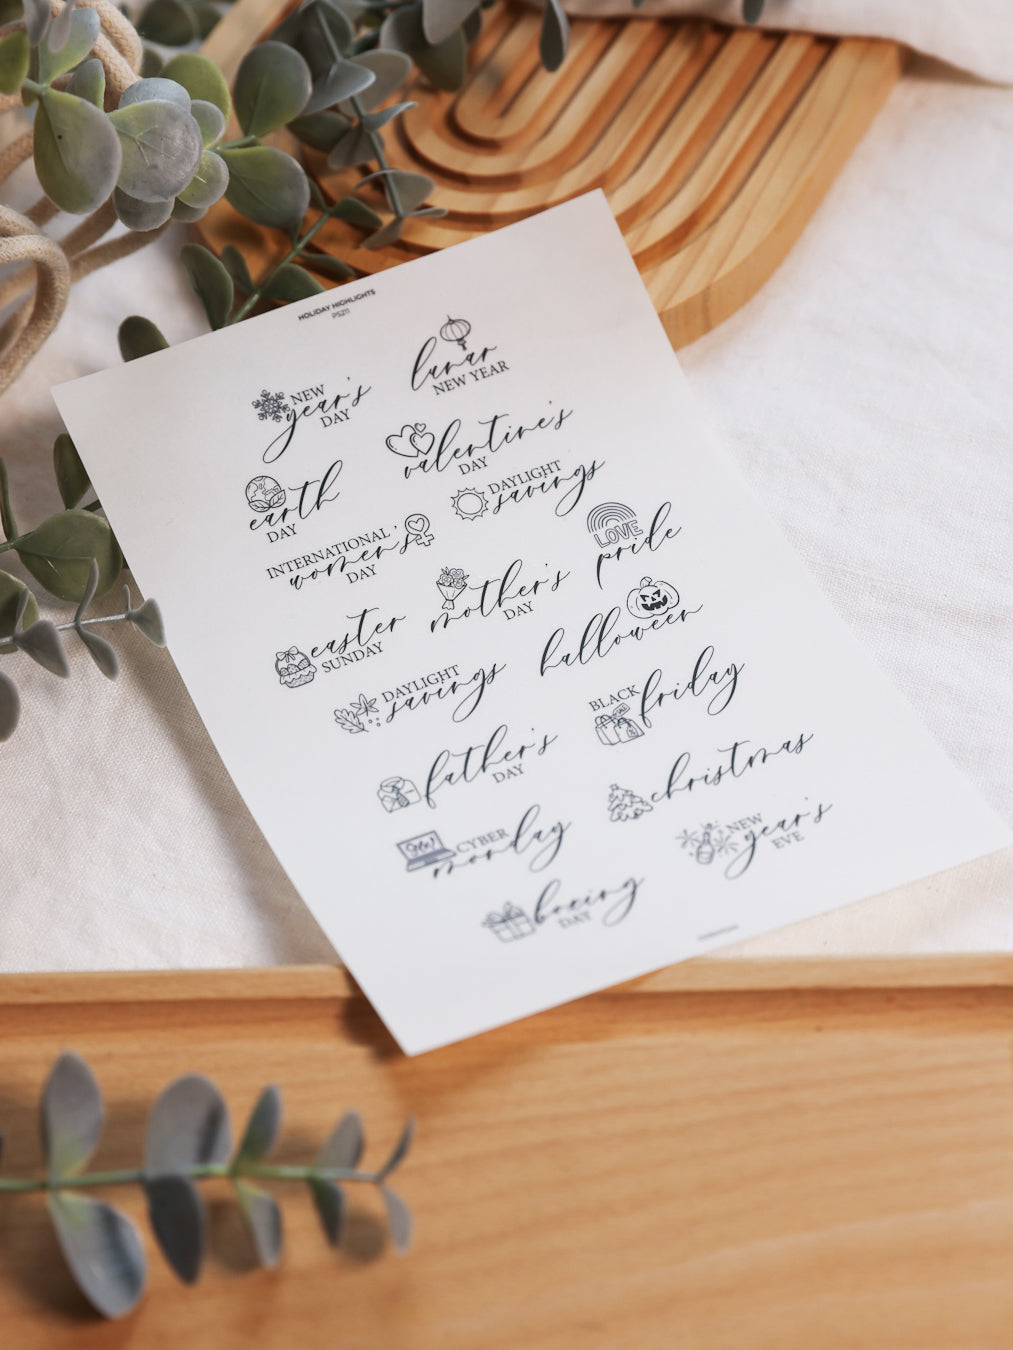 HOLIDAY HIGHLIGHTS
PS211
NEW
year's
DAY
lunar
NEW YEAR
valentine's
DAY
earth
DAY
DAYLIGHT
savings
INTERNATIONAL
women's
DAY
LOVE
pride
mother's
DAY
easter
SUNDAY
halloween
DAYLIGHT
savings
BLACK
friday
father's
DAY
christmas
CYBER
monday
NEW
year's
EVE
boxing
DAY